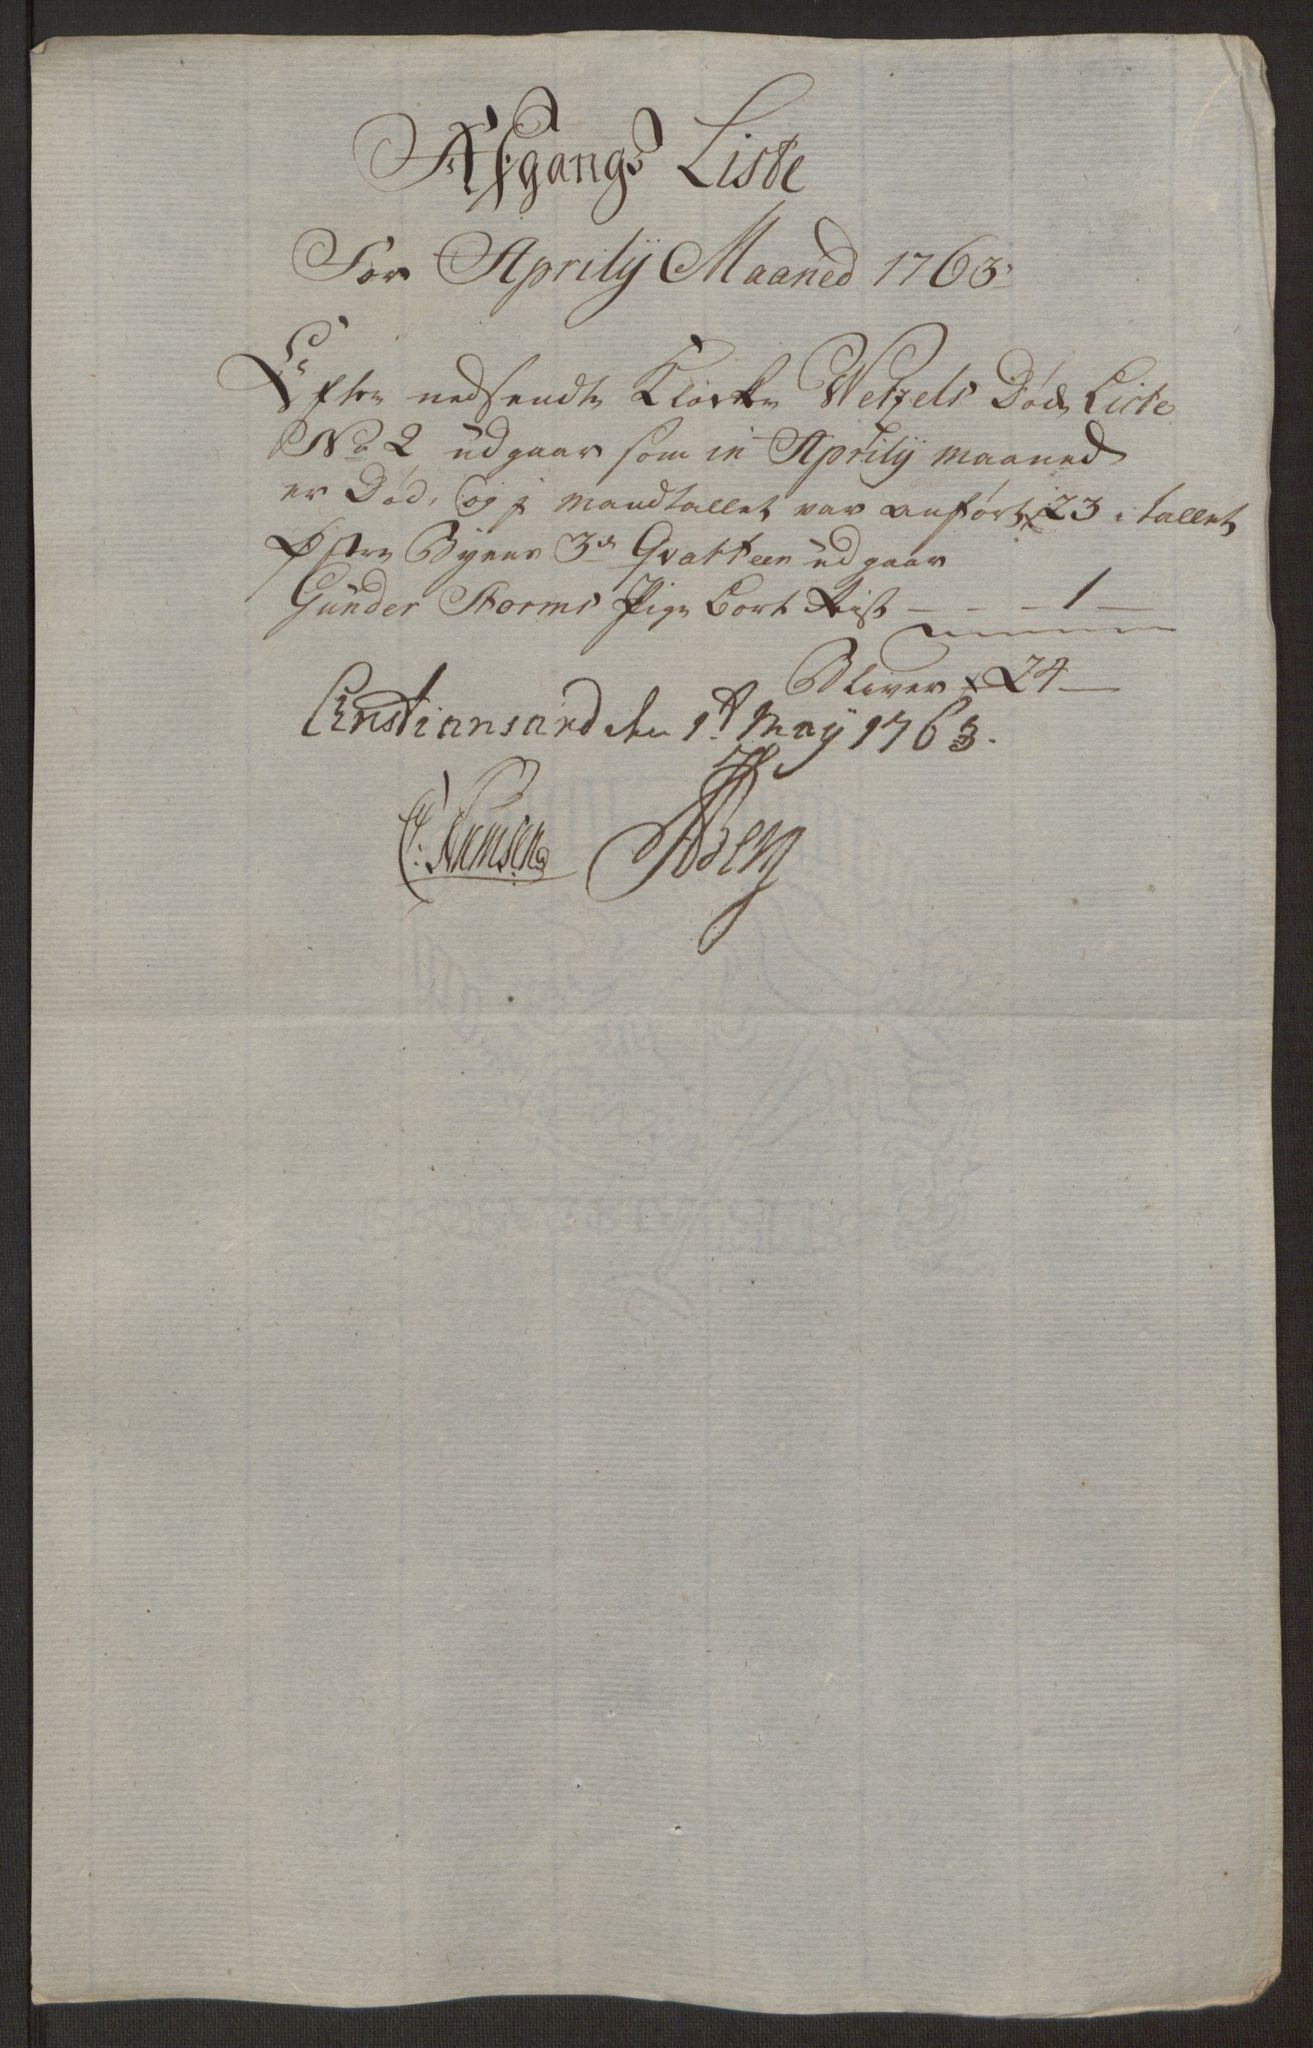 Afgangs Liste
For Aprilÿ Maaned 1763
Efter nedsendte Klocker Wetzels Døde Liste
No 2 udgaar som in Aprilÿ maaned
er Død, og i mandtallet var anført 23 i tallet
Øster Byens 3de Qvarteer udgaar
Gunder Storms Pige bort Reist - - - 1 -
Bliver 24 -
Christiansand den 1t Maÿ 1763.
Berg